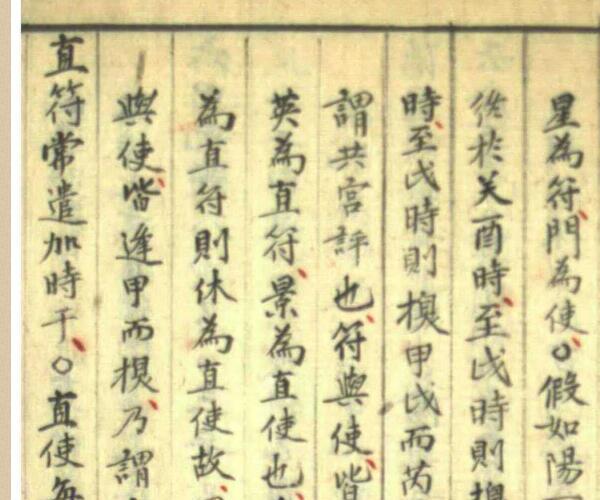 星為符門為使○假如陽
終於癸酉時至戌時則換
時至戌時則換甲戌而芮
謂其宮評也符與使皆
英為直符景為直使也
為直符則休為直使故
與使皆逢甲而換乃謂
直符常遣加時干○直使每